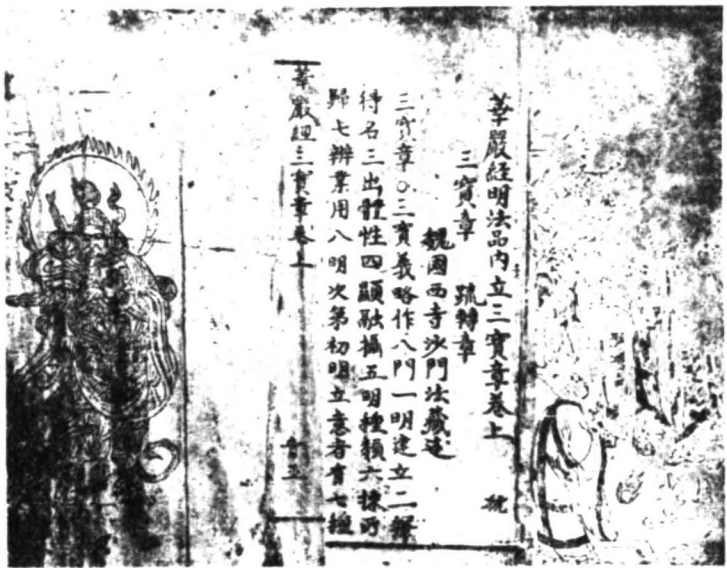 華嚴經明法品內立三寶章卷上 號
三寶章 流轉章
魏國西寺沙門法藏述
三寶章○三寶義略作八門一明建立二釋
得名三出體性四顯融攝五明種類六揀所
歸七辨業用八明次第初明立意者有七種
華嚴經三寶章卷上